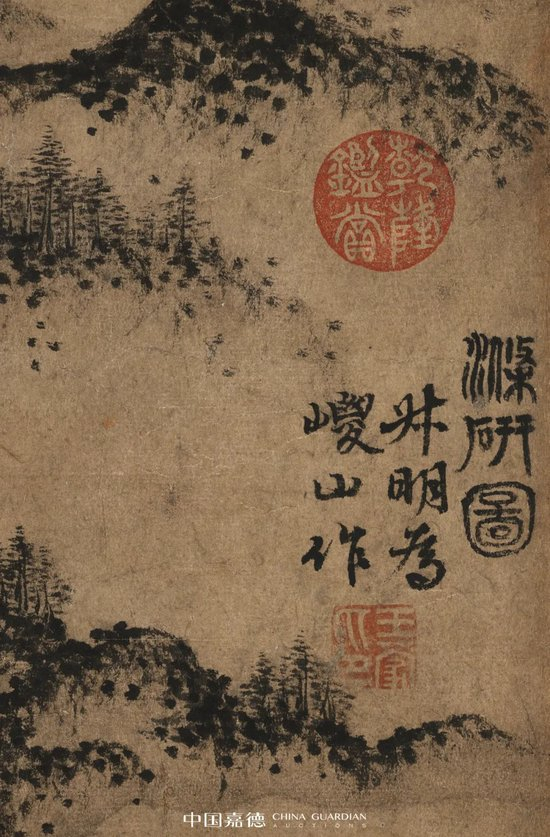 乾隆鑑賞
滌研圖
叔明為
嵕山作
中国嘉德 CHINA GUARDIAN
AUCTIONS